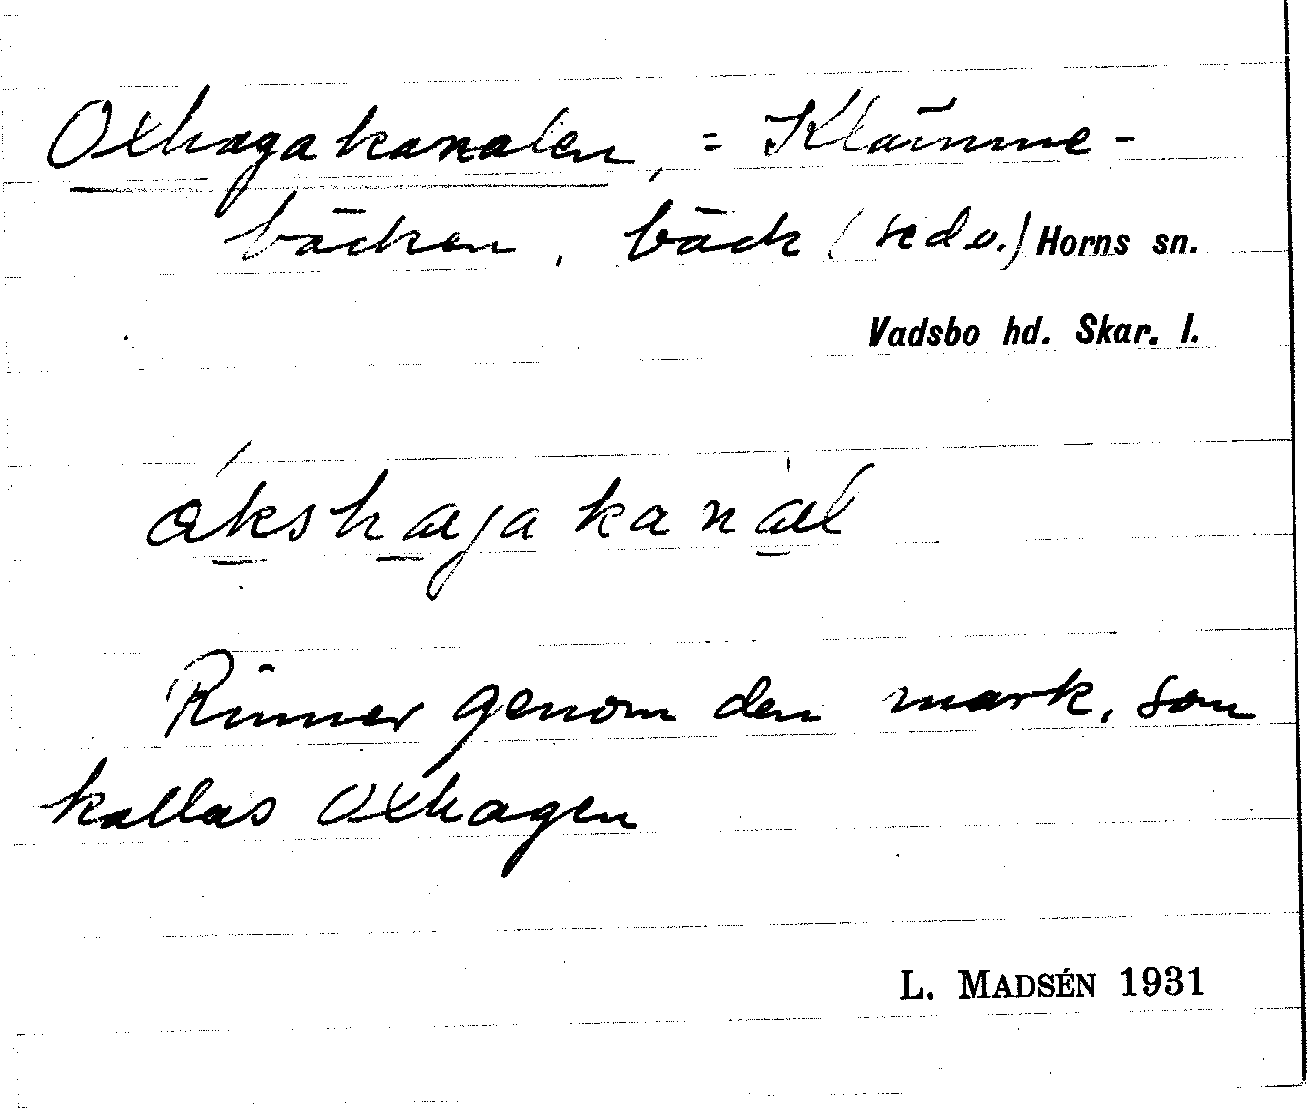 Oxhagakanalen, = Klämme-
bäcken, bäck (se d. o.) Horns sn.
Vadsbo hd. Skar. l.
ákshagakanál
Rinner genom den mark, som
kallas Oxhagen
L. MADSÉN 1931